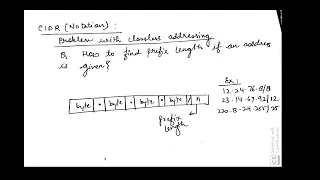 CIDR (Notation) :
Problem with classless addressing
Q. How to find prefix length if an address
is given?
byte • byte • byte • byte / n
prefix
length
Ex:
12.24.76.8/8
23.14.67.92/12
220.8.24.255/25